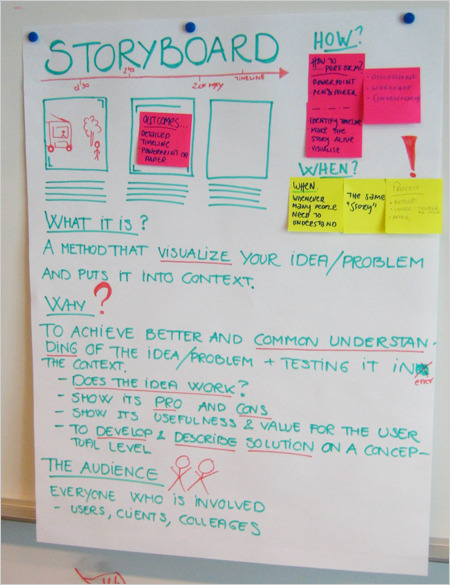 STORYBOARD
TIMELINE
OUTCOMES...
DETAILED
TIMELINE
POWERPOINT OR
PAPER
HOW?
HOW TO
PERFORM?
POWERPOINT
PEN & PAPER
IDENTIFY TIMELINE
MAKE THE
STORY ALIVE
VISUALIZE
WHEN?
!
WHEN.
WHENEVER
MANY PEOPLE
NEED TO
UNDERSTAND
THE SAME
"STORY"
WHAT IT IS?
A METHOD THAT VISUALIZE YOUR IDEA/PROBLEM
AND PUTS IT INTO CONTEXT.
WHY?
TO ACHIEVE BETTER AND COMMON UNDERSTAN-
DING OF THE IDEA/PROBLEM + TESTING IT IN
error
THE CONTEXT.
- DOES THE IDEA WORK?
- SHOW ITS PRO AND CONS
- SHOW ITS USEFULNESS & VALUE FOR THE USER
- TO DEVELOP & DESCRIBE SOLUTION ON A CONCEP-
TUAL LEVEL
THE AUDIENCE
EVERYONE WHO IS INVOLVED
- USERS, CLIENTS, COLLEAGES